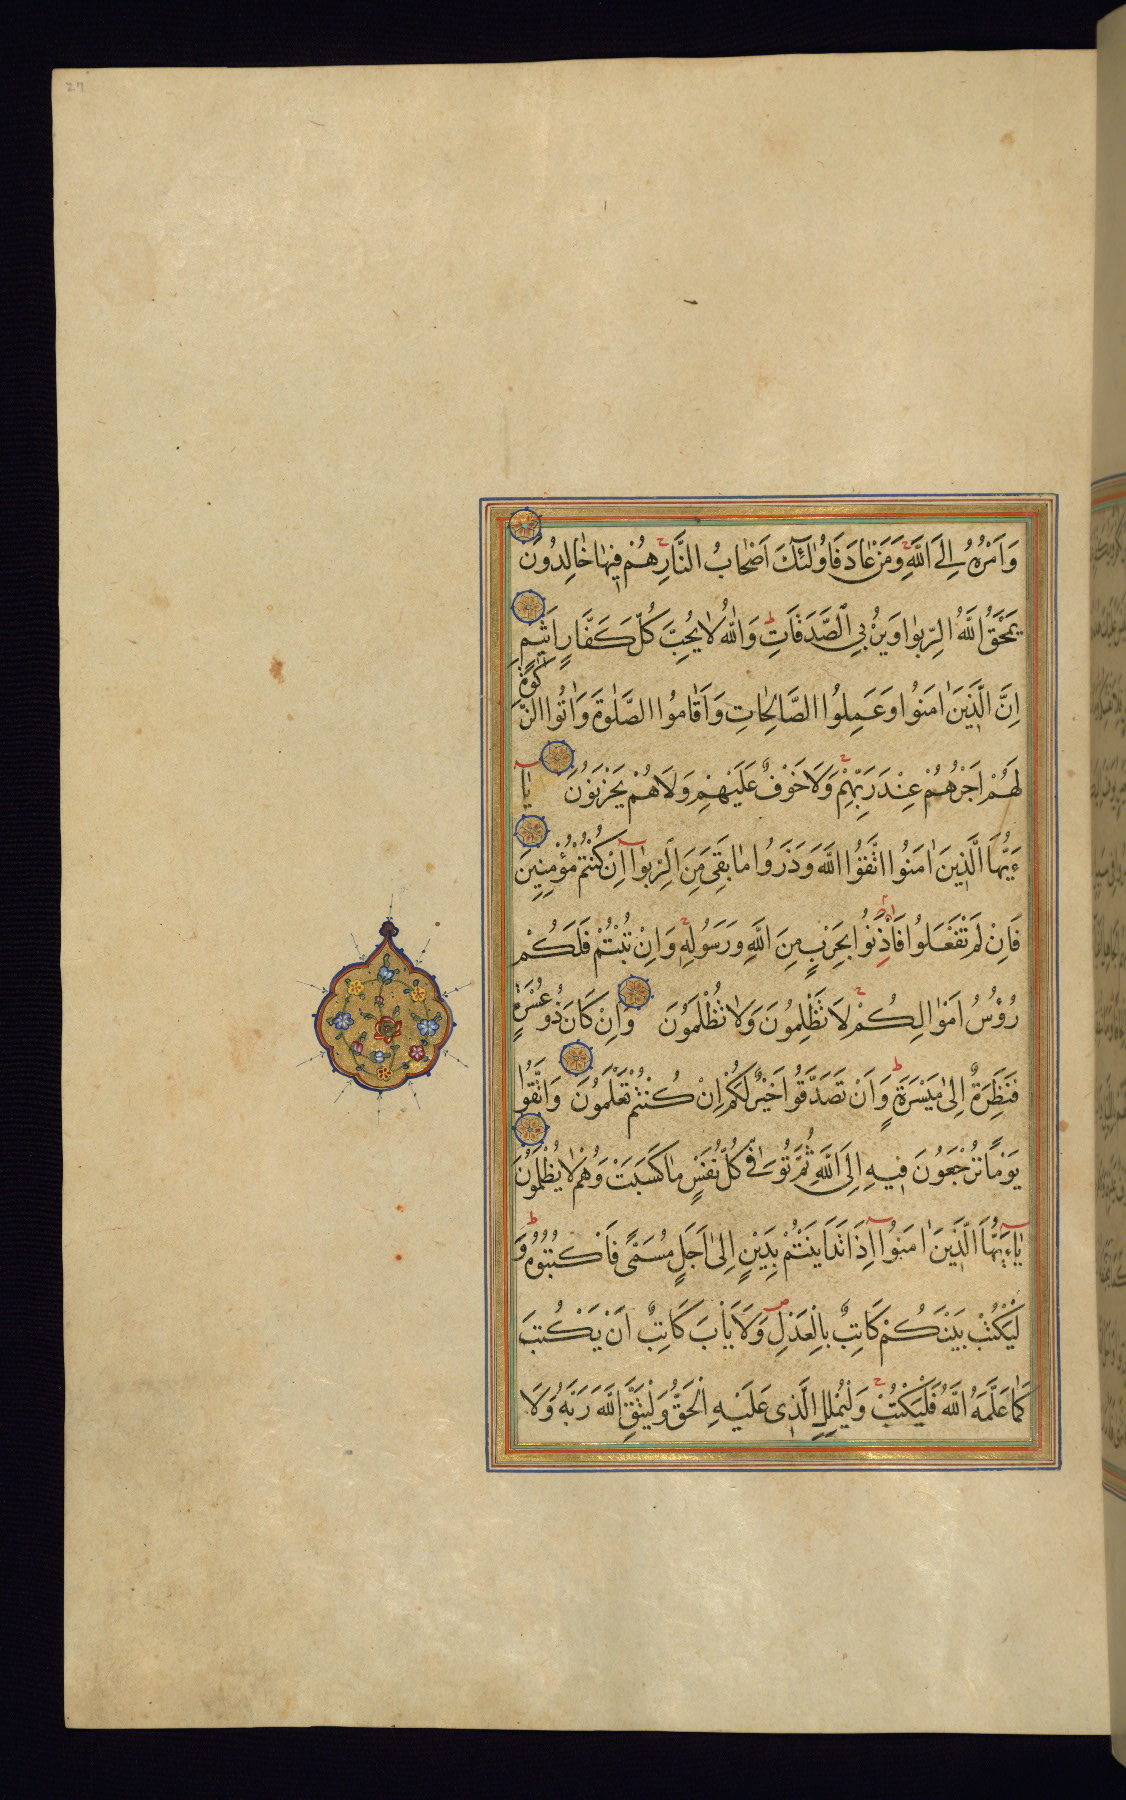 وَاَمْرُهُ اِلَى اللّٰهِ وَمَنْ عَادَ فَاُولٰئِكَ اَصْحَابُ النَّارِ هُمْ فِيهَا خَالِدُونَ
يَمْحَقُ اللّٰهُ الرِّبٰوا وَيُرْبِي الصَّدَقَاتِ وَاللّٰهُ لَا يُحِبُّ كُلَّ كَفَّارٍ اَثِيمٍ
اِنَّ الَّذِينَ اٰمَنُوا وَعَمِلُوا الصَّالِحَاتِ وَاَقَامُوا الصَّلٰوةَ وَاٰتُوا الزَّكٰوةَ
لَهُمْ اَجْرُهُمْ عِنْدَ رَبِّهِمْ وَلَا خَوْفٌ عَلَيْهِمْ وَلَا هُمْ يَحْزَنُونَ يَا
ءَيُّهَا الَّذِينَ اٰمَنُوا اتَّقُوا اللّٰهَ وَذَرُوا مَا بَقِيَ مِنَ الرِّبٰوا اِنْ كُنْتُمْ مُؤْمِنِينَ
فَاِنْ لَمْ تَفْعَلُوا فَأْذَنُوا بِحَرْبٍ مِنَ اللّٰهِ وَرَسُولِهِ وَاِنْ تُبْتُمْ فَلَكُمْ
رُؤُسُ اَمْوَالِكُمْ لَا تَظْلِمُونَ وَلَا تُظْلَمُونَ وَاِنْ كَانَ ذُو عُسْرَةٍ
فَنَظِرَةٌ اِلٰى مَيْسَرَةٍ وَاَنْ تَصَدَّقُوا خَيْرٌ لَكُمْ اِنْ كُنْتُمْ تَعْلَمُونَ وَاتَّقُوا
يَوْمًا تُرْجَعُونَ فِيهِ اِلَى اللّٰهِ ثُمَّ تُوَفّٰى كُلُّ نَفْسٍ مَا كَسَبَتْ وَهُمْ لَا يُظْلَمُونَ
يَاءَيُّهَا الَّذِينَ اٰمَنُوا اِذَا تَدَايَنْتُمْ بِدَيْنٍ اِلٰى اَجَلٍ مُسَمًّى فَاكْتُبُوهُ وَ
لْيَكْتُبْ بَيْنَكُمْ كَاتِبٌ بِالْعَدْلِ وَلَا يَأْبَ كَاتِبٌ اَنْ يَكْتُبَ
كَمَا عَلَّمَهُ اللّٰهُ فَلْيَكْتُبْ وَلْيُمْلِلِ الَّذِي عَلَيْهِ الْحَقُّ وَلْيَتَّقِ اللّٰهَ رَبَّهُ وَلَا